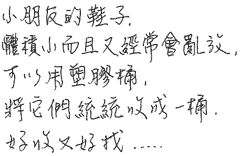 小朋友的鞋子,
體積小而且又經常會亂放,
可以用塑膠桶,
將它們統統收成一桶.
好收又好找.....